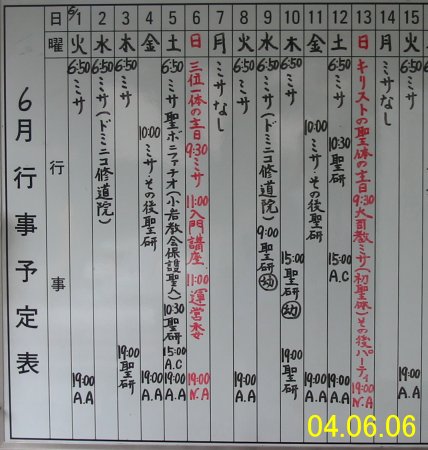 6月行事予定表
日 6/1 2 3 4 5 6 7 8 9 10 11 12 13 14 15
曜 火 水 木 金 土 日 月 火 水 木 金 土 日 月 火
行事
6:50 ミサ 19:00 A.A
6:50 ミサ(ドミニコ修道院)
6:50 ミサ 19:00 聖研
10:00 ミサ・その後聖研 19:00 A.A
6:50 ミサ 聖ボニファチオ(小岩教会保護聖人) 10:30 聖研 15:00 A.C 19:00 A.A
三位一体の主日 9:30 ミサ 11:00 入門講座 11:00 運営委 19:00 N.A
ミサなし
6:50 ミサ 19:00 A.A
6:50 ミサ(ドミニコ修道院) 9:00 聖研 幼
6:50 ミサ 15:00 聖研 幼 19:00 聖研
10:00 ミサ・その後聖研 19:00 A.A
6:50 ミサ 10:30 聖研 15:00 A.C 19:00 A.A
キリストの聖体の主日 9:30 大司教ミサ(初聖体)その後パーティ 19:00 N.A
ミサなし
6:50 ミサ 19:00 A.A
04.06.06